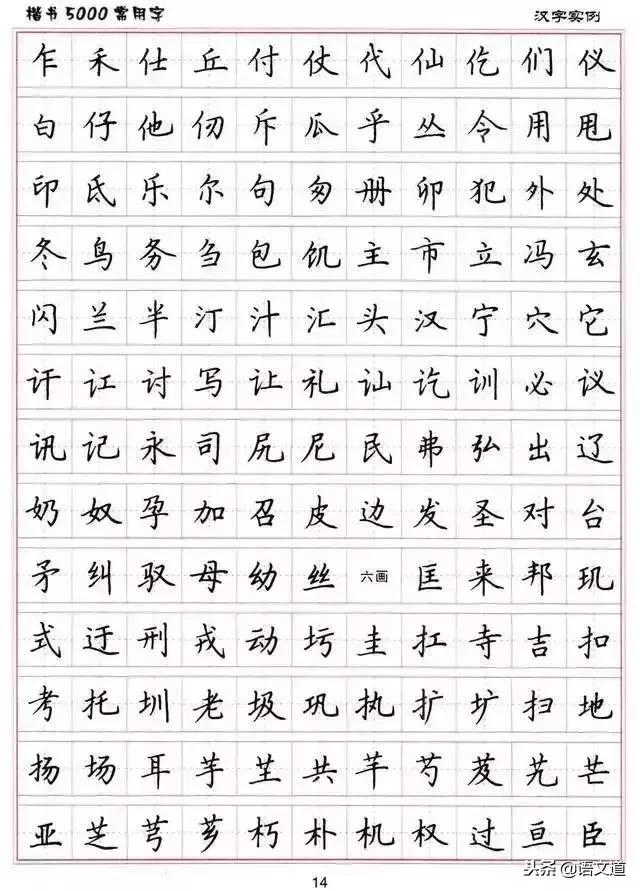 楷书5000常用字 汉字实例
乍禾仕丘付仗代仙仡们仪
白仔他仞斥瓜乎丛令用甩
印氐乐尔句匆册卯犯外处
冬鸟务刍包饥主市立冯玄
闪兰半汀汁汇头汉宁穴它
讦讧讨写让礼讪讫训必议
讯记永司尻尼民弗弘出辽
奶奴孕加召皮边发圣对台
矛纠驭母幼丝六画匡来邦玑
式迂刑戎动圬圭扛寺吉扣
考托圳老圾巩执扩圹扫地
扬场耳芋芏共芊芍芨艽芒
亚芝芎芗朽朴机权过亘臣
14
头条@语文道